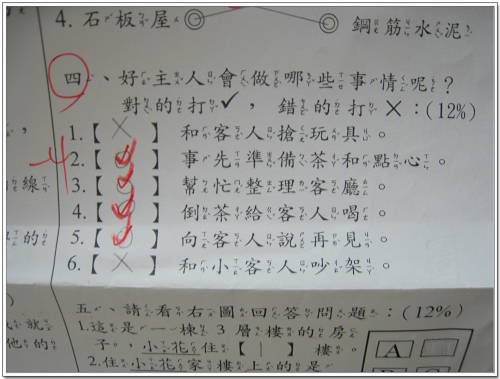 4. 石板屋 鋼筋水泥
四、好主人會做哪些事情呢？
對的打✓，錯的打✕：(12%)
-4
1.【 ✕ 】 和客人搶玩具。
2.【 ○ 】 事先準備茶和點心。
3.【 ○ 】 幫忙整理客廳。
4.【 ○ 】 倒茶給客人喝。
5.【 ○ 】 向客人說再見。
6.【 ✕ 】 和小客人吵架。
線
的
五、請看右圖回答問題：(12%)
1.這是一棟3層樓的房
子。小花住【 1 】樓。
2.住小花家樓上的是
就
他的
A
C